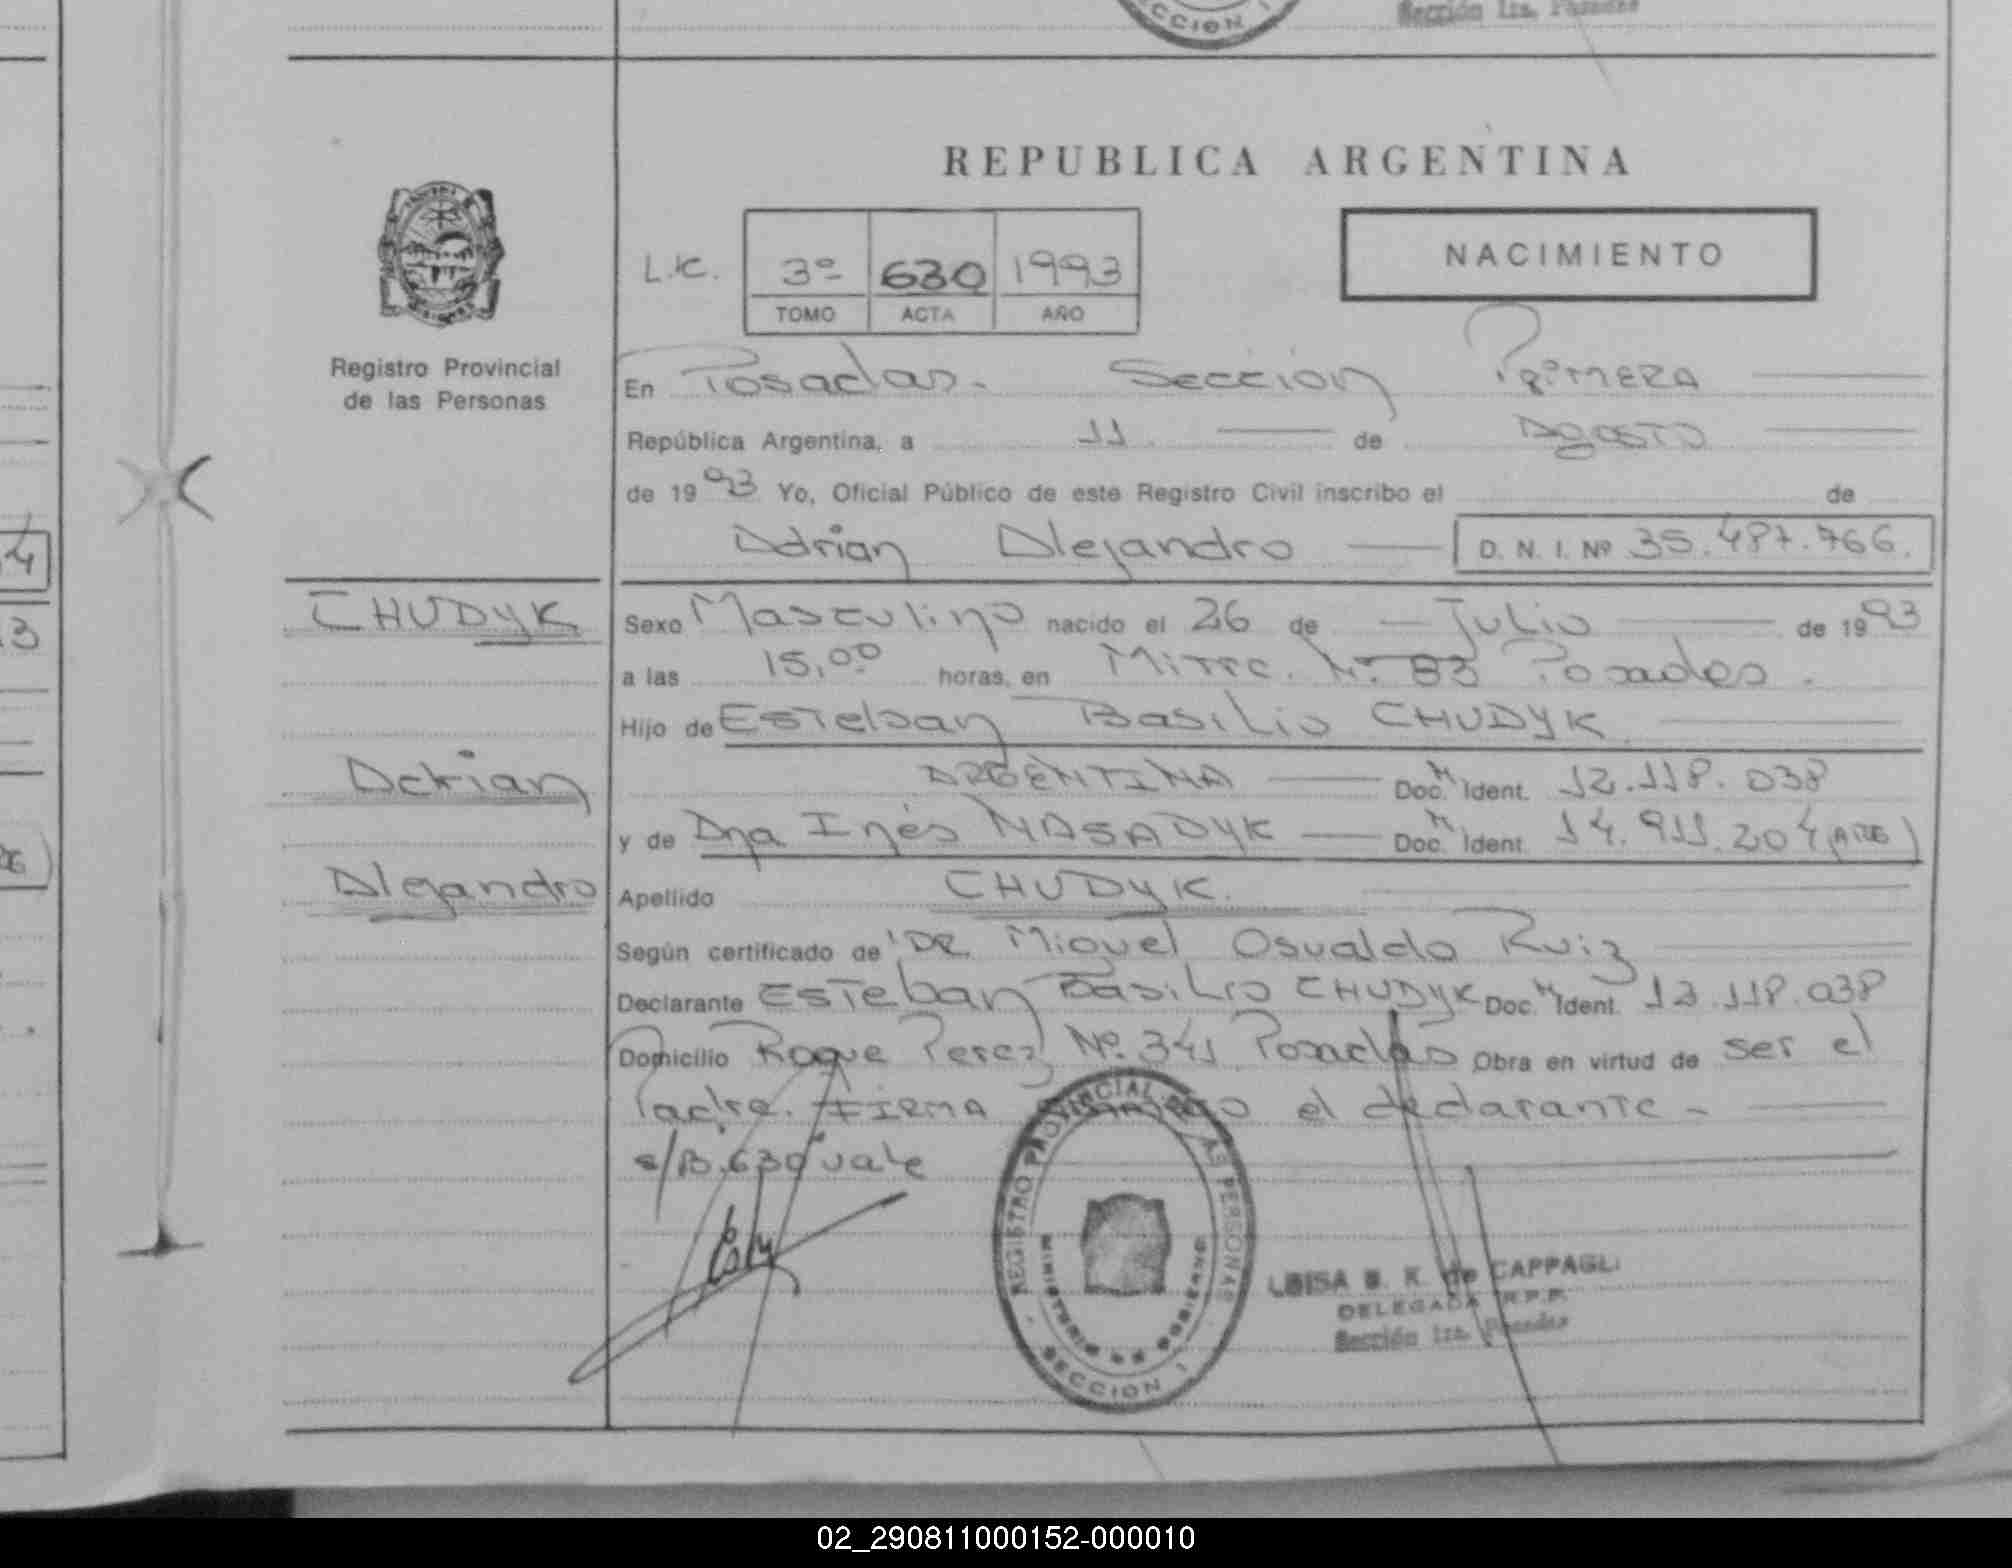 SECCION 1
Sección 1ra. Posadas
REPUBLICA ARGENTINA
NACIMIENTO
L.C. 3º 630 1993
TOMO ACTA AÑO
Registro Provincial
de las Personas
En Posadas. Sección Primera
República Argentina, a 11 de Agosto
de 1993 Yo, Oficial Público de este Registro Civil inscribo el de
Adrian Alejandro D. N. I. Nº 35.487.766.
CHUDYK
Sexo Masculino nacido el 26 de Julio de 1993
a las 15,00 horas, en Mitre. Nº 83 Posadas.
Hijo de Esteban Basilio CHUDYK
Adrian
ARGENTINA Doc. N Ident. 12.118.038
y de Ana Inés NASADYK Doc. N Ident. 14.911.204 (ARG)
Alejandro
Apellido CHUDYK.
Según certificado de DR. Miguel Osvaldo Ruiz
Declarante Esteban Basilio CHUDYK Doc. N Ident. 12.118.038
Domicilio Roque Perez Nº. 341 Posadas Obra en virtud de ser el
Padre. FIRMA conmigo el declarante -
s/B. 630 vale
REGISTRO PROVINCIAL DE LAS PERSONAS
MINISTERIO DE GOBIERNO
SECCION 1
LUISA B. K. de CAPPAGLI
DELEGADA R.P.P.
Sección 1ra. Posadas
02_290811000152-000010